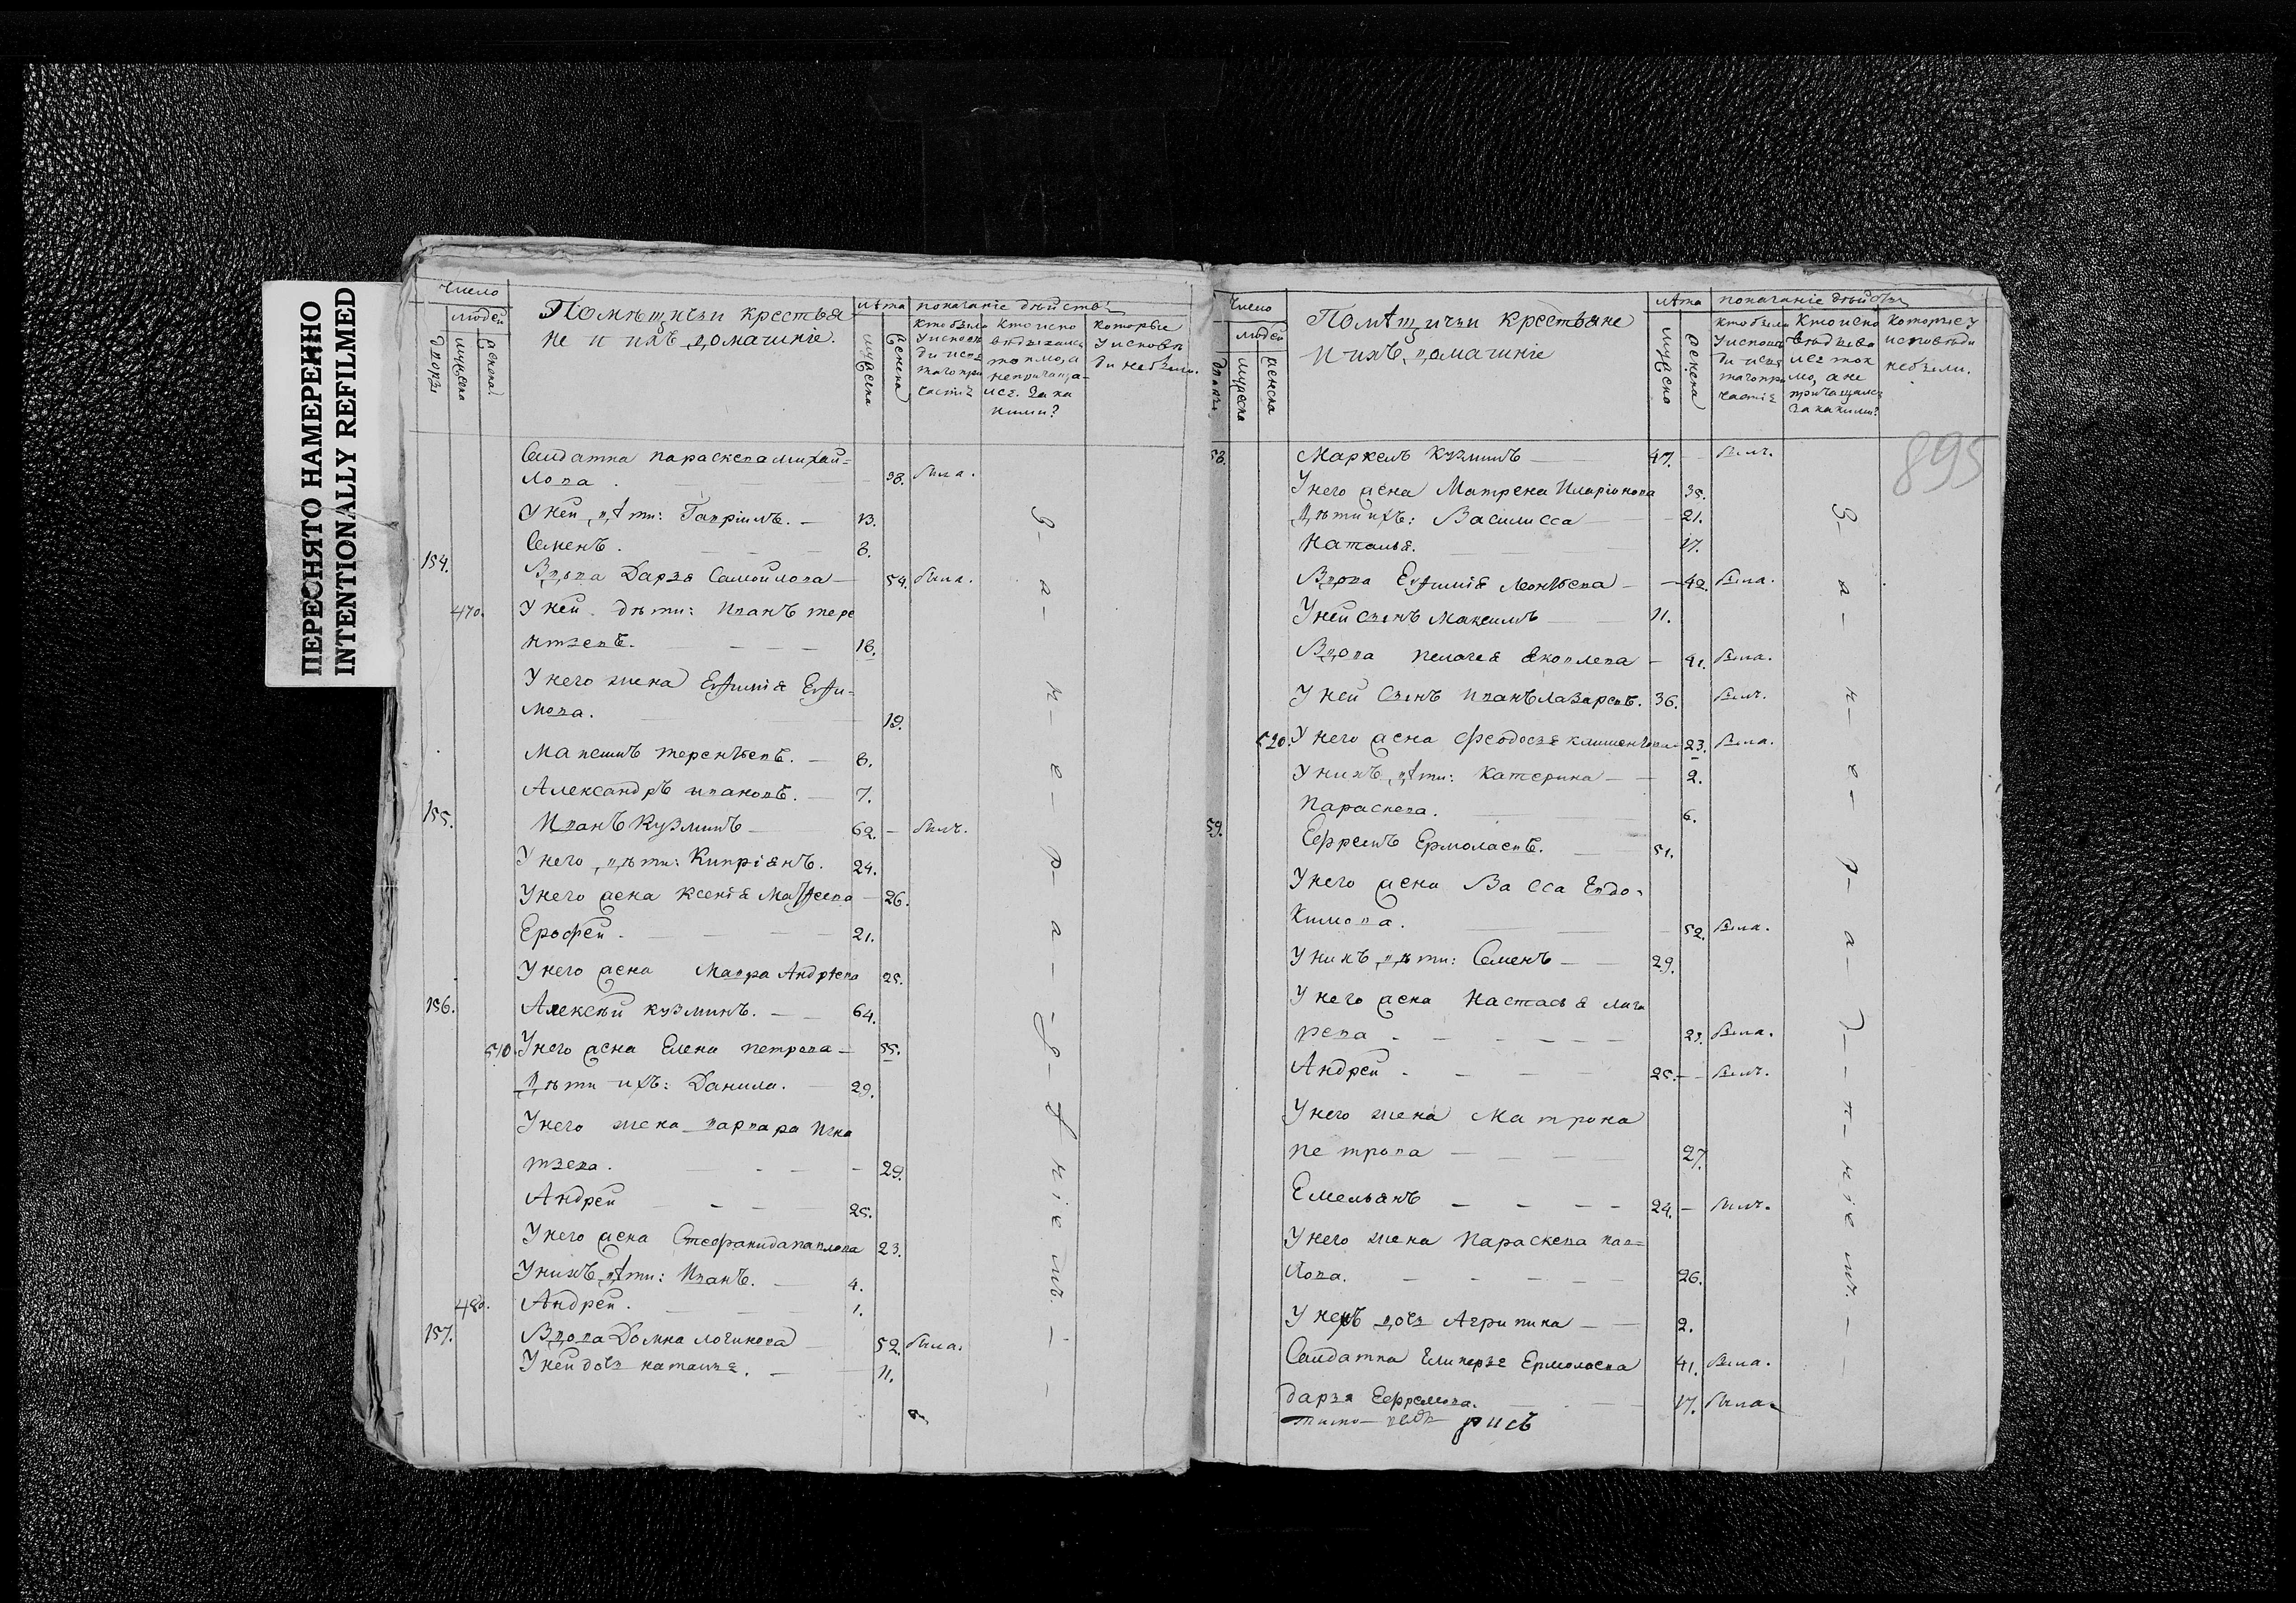 ПЕРЕСНЯТО НАМЕРЕННО
INTENTIONALLY REFILMED
число
людей
дворы
мужеска
женска
Помѣщичьи крестья
не и ихъ домашніе.
лѣта
мужеска
женска
показаніе дѣйств:
кто были
у исповѣ
ди и св:
таго при
частія
кто испо
вѣдывался
токмо, а
непричаща-
лся. за ка
кими?
которые
у исповѣ
ди небыли.
Салдатка параскева михай=
лова . 38. была.
У ней дѣти: Гавріилъ. — 13.
Семенъ . 8.
154. Вдова Дарья Самойлова — 54. была.
470. У ней дѣти: Иванъ тере
нтьевъ. 18.
У него жена Евѳимія Евѳи=
мова. 19.
Максимъ терентьевъ. — 8.
Александръ ивановъ. — 7.
155. Иванъ Кузминъ — 62. — былъ.
У него дѣти: Кипріянъ. 24.
У него жена Ксенія Матѳеева — 26.
Ерофей . 21.
У него жена Мавра Андрѣева 25.
156. Алексѣй кузминъ. — 64.
510. У него жена Елена петрова — 55.
Дѣти ихъ: Данила. 29.
У него жена варвара Игна
тьева. 29.
Андрей 25.
У него жена Стефанида павлова 23.
У нихъ дѣти: Иванъ. — 4.
480. Андрей . 1.
157. Вдова Домна логинова 52. была.
У ней дочь наталья. — 11.
число
людей
дворы
мужеска
женска
Помѣщичьи крестьяне
и ихъ домашніе
лѣта
мужеско
женска
показаніе дѣйств
кто были
у исповѣ
ди и свя
таго при
частія
Кто испо
вѣдыва
лся ток
мо, а не
причащался
за какими?
которые у
исповѣди
небыли.
895
58. Маркелъ Кузминъ — 47. — былъ.
У него жена Матрена Иларіонова 35.
Дѣти ихъ: Василисса — 21.
Наталья. 17.
Вдова Евѳимія Леонтьева — 42. была.
У ней сынъ Максимъ — 11.
Вдова пелагея яковлева — 41. была.
У ней Сынъ иванъ лазаревъ. 36. былъ.
520. У него жена феодосья климентова 23. была.
У нихъ дѣти: Катерина — 2.
Параскева. 6.
59. Ефремъ Ермолаевъ. 51.
У него жена Васса Евдо=
кимова. 52. была.
У нихъ дѣти: Семенъ — 29.
У него жена Настасья лаза
рева 23. была.
Андрей 25. — былъ.
У него жена Матрона
петрова 27.
Емельянъ 24. — былъ.
У него жена Параскева пав=
лова. 26.
У нихъ дочь Агрипина — 2.
Салдатка Гликерья Ермолаева 41. была.
дарья Ефремова. 17. была.
рисъ